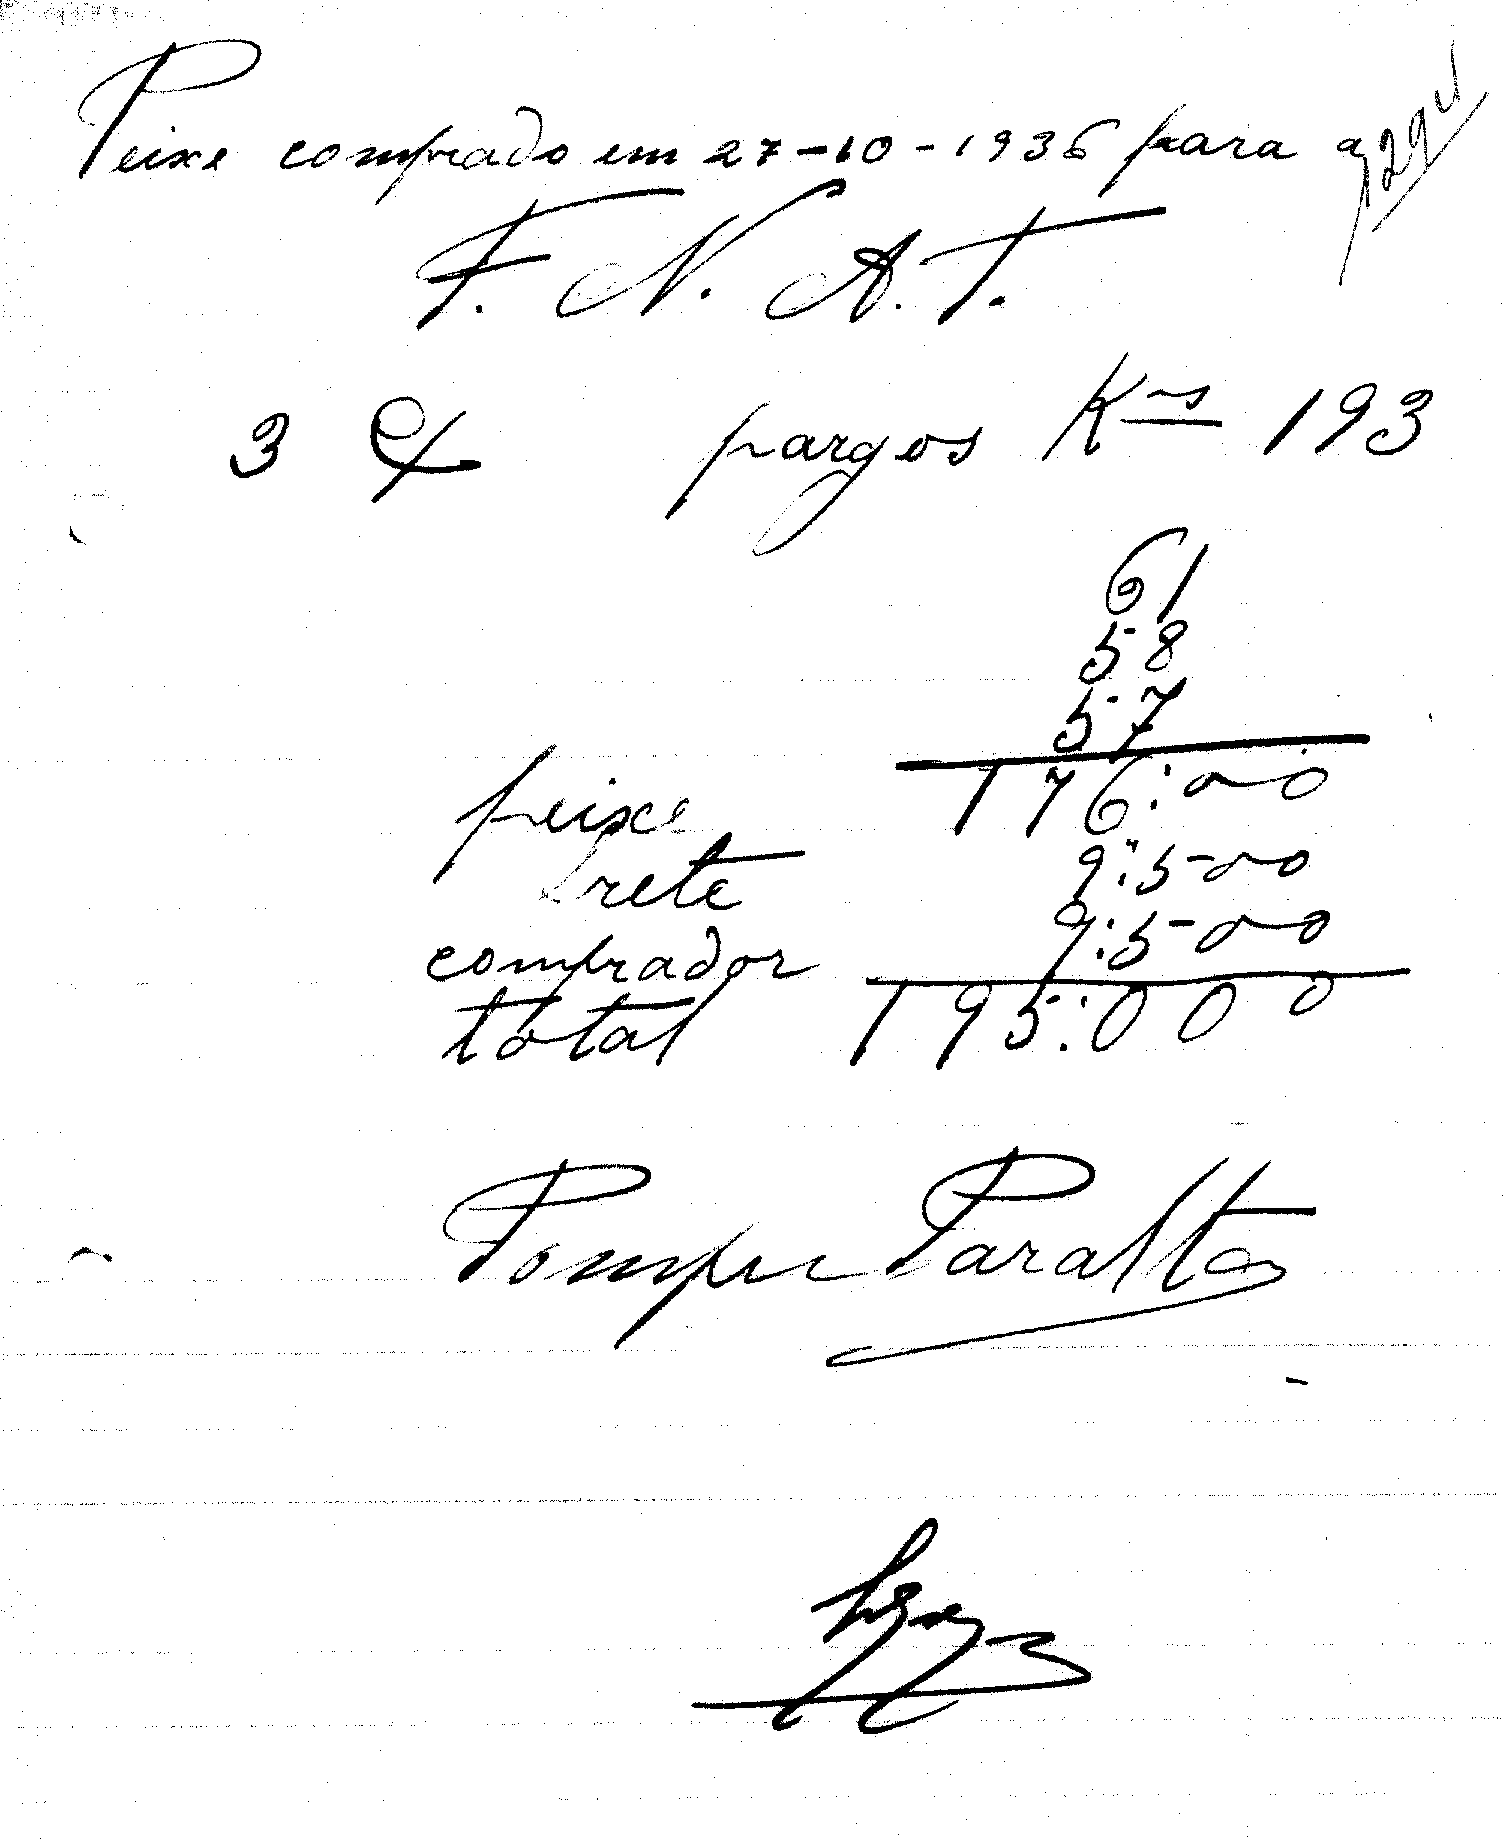 Peixe comprado em 27-10-1936 para a
F. N. A. T.
3 pargos Kos 193
61
58
57
peixe 176:000
frete 9:500
comprador 9:500
total 195:000
Pompeu Paralta